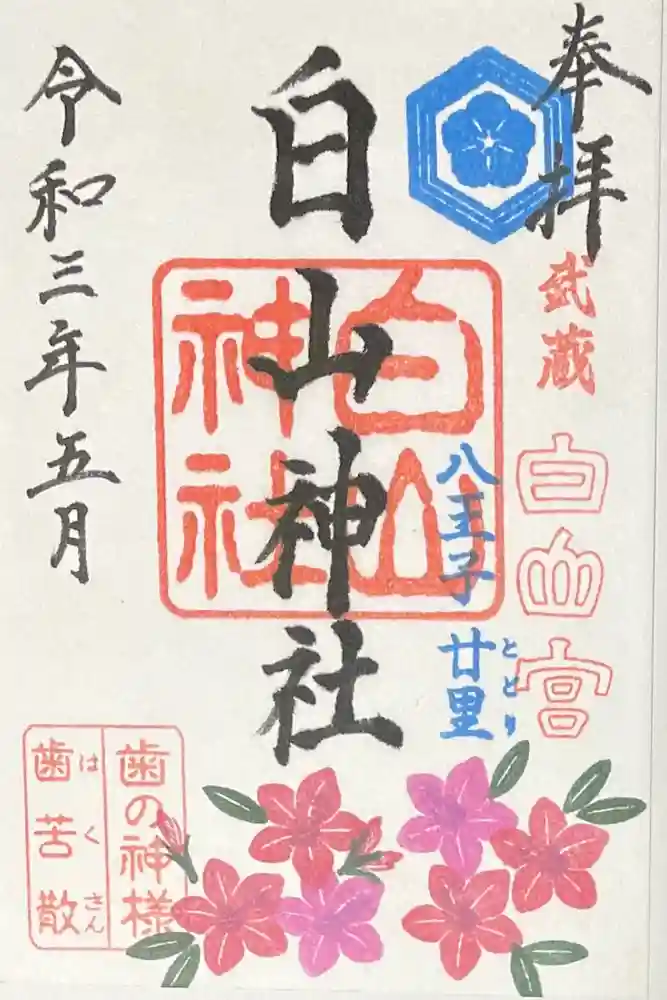 奉拝
武蔵
白山宮
八王子 廿里
とどり
白山神社
白山
神社
令和三年五月
歯の神様
歯苦散
はくさん